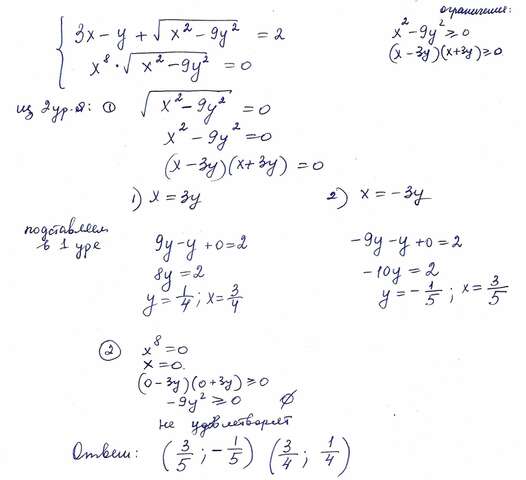 ограничения:
x² - 9y² ≥ 0
(x - 3y)(x + 3y) ≥ 0
{ 3x - y + √(x² - 9y²) = 2
x⁸ · √(x² - 9y²) = 0
из 2 ур-я: ① √(x² - 9y²) = 0
x² - 9y² = 0
(x - 3y)(x + 3y) = 0
1) x = 3y
2) x = -3y
подставляем
в 1 ур-е
9y - y + 0 = 2
8y = 2
y = 1/4 ; x = 3/4
-9y - y + 0 = 2
-10y = 2
y = - 1/5 ; x = 3/5
② x⁸ = 0
x = 0.
(0 - 3y)(0 + 3y) ≥ 0
-9y² ≥ 0 ∅
не удовлетворяет
Ответ: (3/5 ; - 1/5) (3/4 ; 1/4)